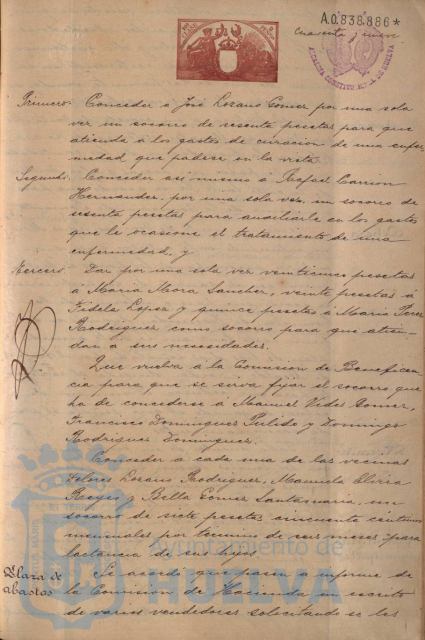 A.0.838.886*
cuarenta y nueve
Primero: Conceder á José Lozano Gomez por una sola
vez un socorro de sesenta pesetas para que
atienda á los gastos de curacion de una enfer-
medad que padece en la vista.
Segundo: Conceder asi mismo á Rafael Carrion
Hernandez, por una sola vez, un socorro de
sesenta pesetas para auxiliarle en los gastos
que le ocasione el tratamiento de una
enfermedad, y
Tercero: Dar por una sola vez veinticinco pesetas
á Maria Mora Sanchez, veinte pesetas á
Fidela Lopez y quince pesetas á Maria Perez
Rodriguez como socorro para que atien-
dan á sus necesidades.
Que vuelva á la Comision de Beneficen
cia para que se sirva fijar el socorro que
ha de concederse á Manuel Vides Gomez,
Francisco Dominguez Pulido y Domingo
Rodriguez Dominguez.
Conceder á cada una de las vecinas
Dolores Lozano Rodriguez, Manuela
Reyes y Bella Gomez Santamaria, un
socorro de siete pesetas cincuenta centimos
mensuales por término de seis meses para
lactancia de sus hijos.
Plaza de
abastos
Se acordó que pase á informe de
la Comision de Hacienda un escrito
de varios vendedores solicitando se les
Ayuntamiento de
HUELVA